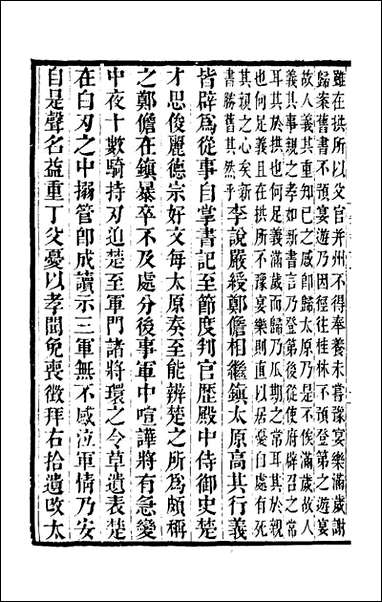 雖在拱所以父官并州不得奉養未嘗豫宴樂滿歲謝
歸案舊書不預宴遊乃因徑往桂林不預登第之遊宴
故人義其重知已之感卽歸太原乃是不俟滿歲故人
義其事親之孝如新書言乃登第後從使府辟召之常
耳其於拱也何足義滿歲而歸乃瓜期之常耳其於親
也何足義且在拱所不豫宴樂則直以居憂自處有死
其親之心矣新
書勝舊其然乎
李說嚴綬鄭儋相繼鎮太原高其行義
皆辟爲從事自掌書記至節度判官歷殿中侍御史楚
才思俊麗德宗好文每太原奏至能辨楚之所爲頗稱
之鄭儋在鎮暴卒不及處分後事軍中喧譁將有急變
中夜十數騎持刃迫楚至軍門諸將環之令草遺表楚
在白刃之中搦管卽成讀示三軍無不感泣軍情乃安
自是聲名益重丁父憂以孝聞免喪徵拜右拾遺改太